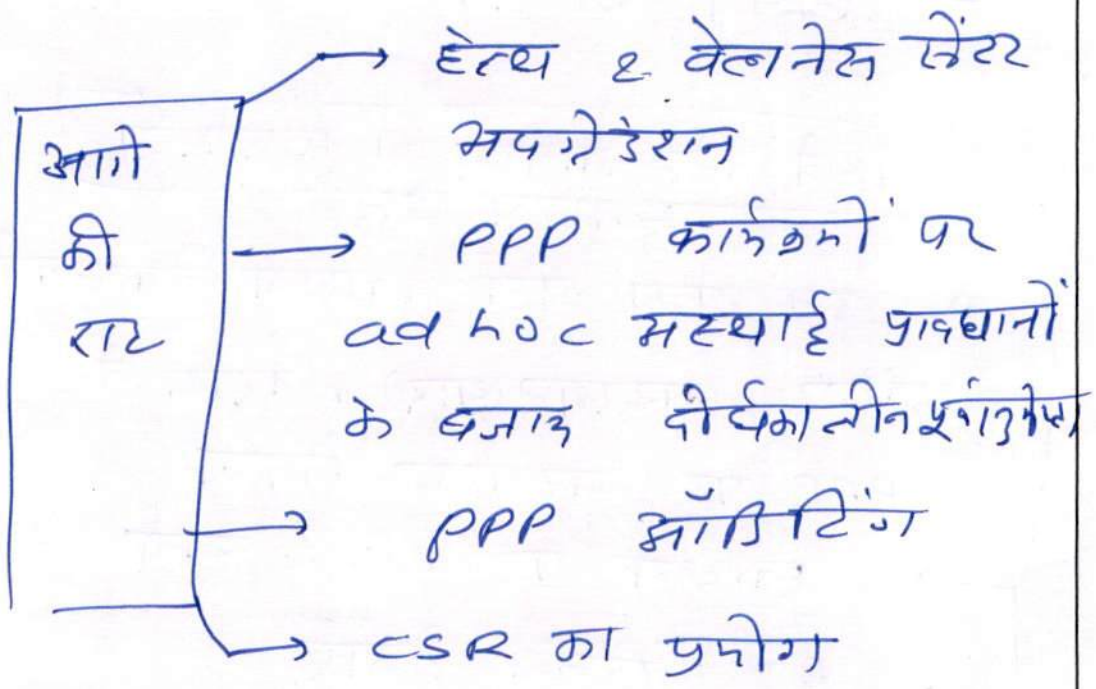 आगे
की
राह
→ हेल्थ & वेलनेस सेंटर
अपग्रेडेशन
→ PPP कार्यक्रमों पर
ad hoc अस्थाई प्रावधानों
के बजाय दीर्घकालीन
→ PPP ऑडिटिंग
→ CSR का प्रयोग